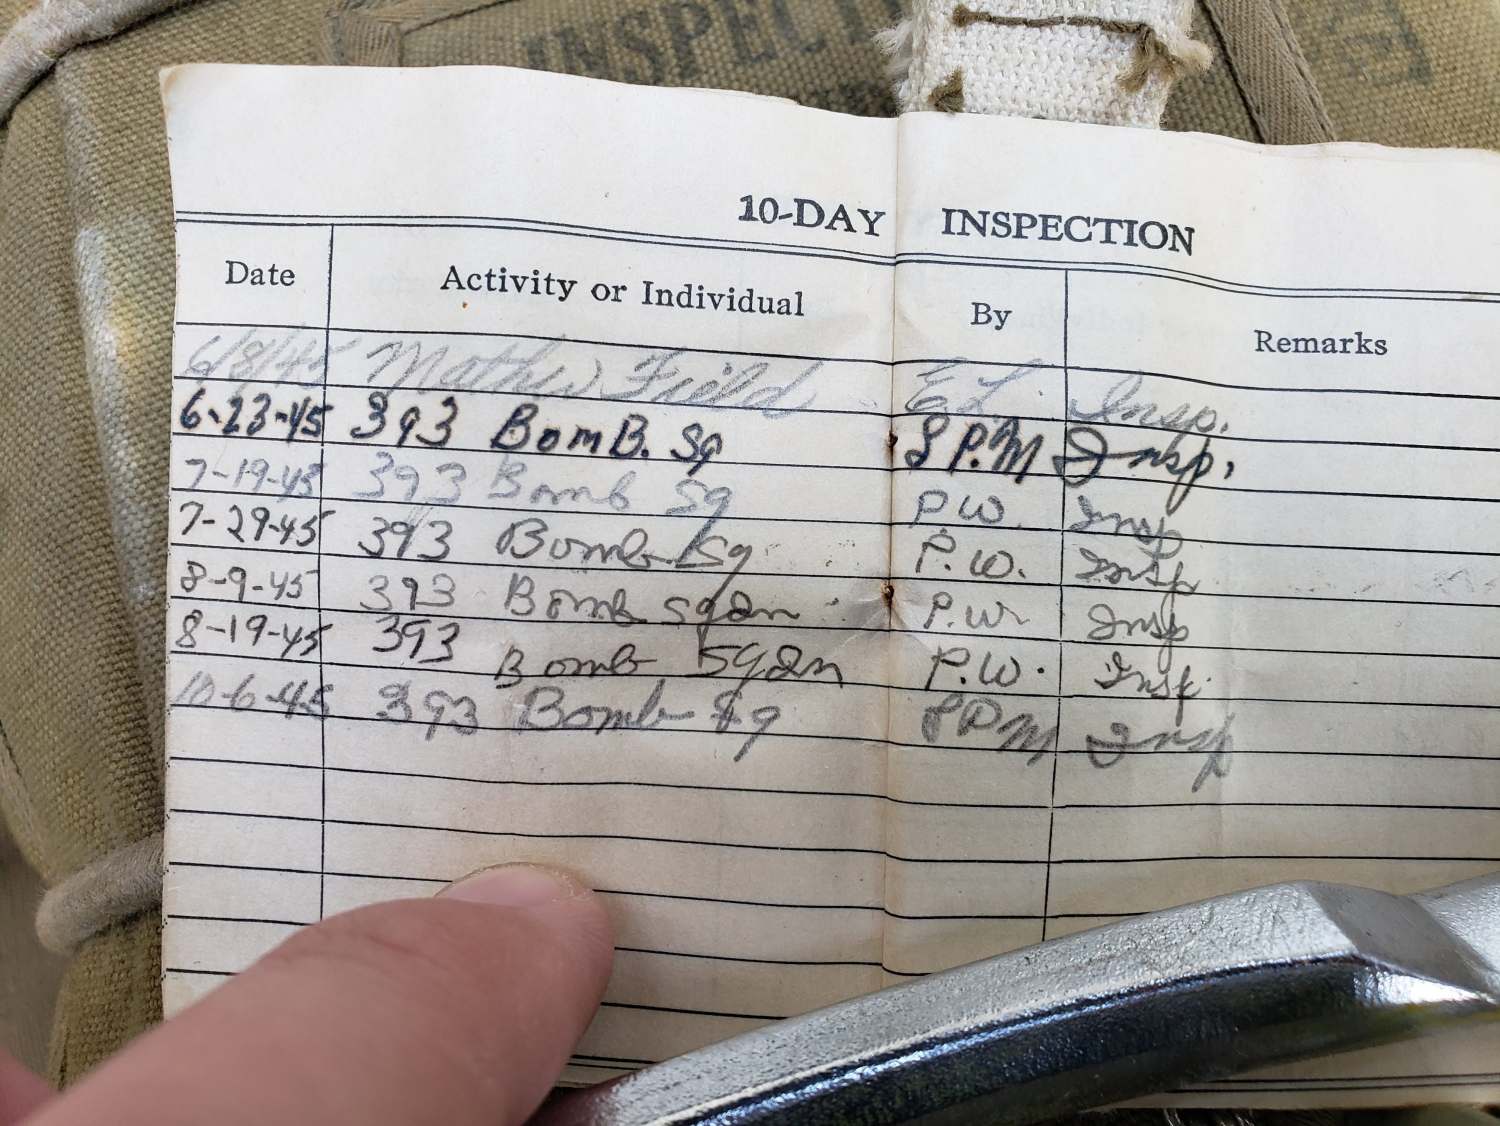 INSPECTI
10-DAY INSPECTION
Date Activity or Individual By Remarks
6/8/45 Mather Field E L. Insp.
6-23-45 393 BomB. Sq S P.M Insp.
7-19-45 393 Bomb Sq P.W. Insp
7-29-45 393 Bomb Sq P.W. Insp
8-9-45 393 Bomb Sqdn P.W. Insp
8-19-45 393 Bomb Sqdn P.W. Insp.
10-6-45 393 Bomb Sq SPM Insp